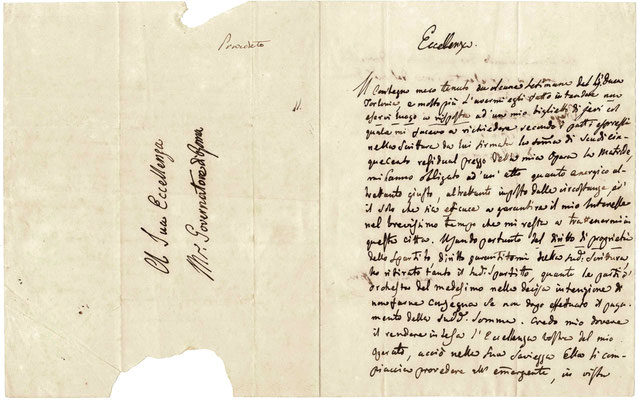 Provveduto
A Sua Eccellenza
Mr. Governatore di Roma
Eccellenza.
Il Contegno meco tenuto da alcune settimane dal Sig. Duca
Torlonia, e molto più l'avermi egli fatto intendere non
esservi luogo a risposta ad un mio biglietto di jeri col
quale mi facevo a richiedere secondo i patti espressi
nella Scrittura da lui firmata la somma di Scudi cin-
quecento residual prezzo della mia Opera la Matilde,
mi hanno obbligato ad un' atto quanto energico al-
trettanto giusto, altrettanto imposto dalle circostanze, è
il solo che sia efficace a garantire il mio Interesse
nel brevissimo tempo che mi resta a trattenermi in
questa città. Usando pertanto del diritto di proprietà
dello Spartito diritto garantitomi dalla Sud. Scrittura
ho ritirato tanto il Sud. Spartito, quanto le parti d'
orchestra del medesimo nella decisa intenzione di
non farne consegna se non dopo effettuato il paga-
mento della Sud. Somma. Credo mio dovere
il rendere intesa l'Eccellenza Vostra del mio
operato, acciò nella Sua Saviezza Ella si com-
piaccia provedere all' emergente, in vista